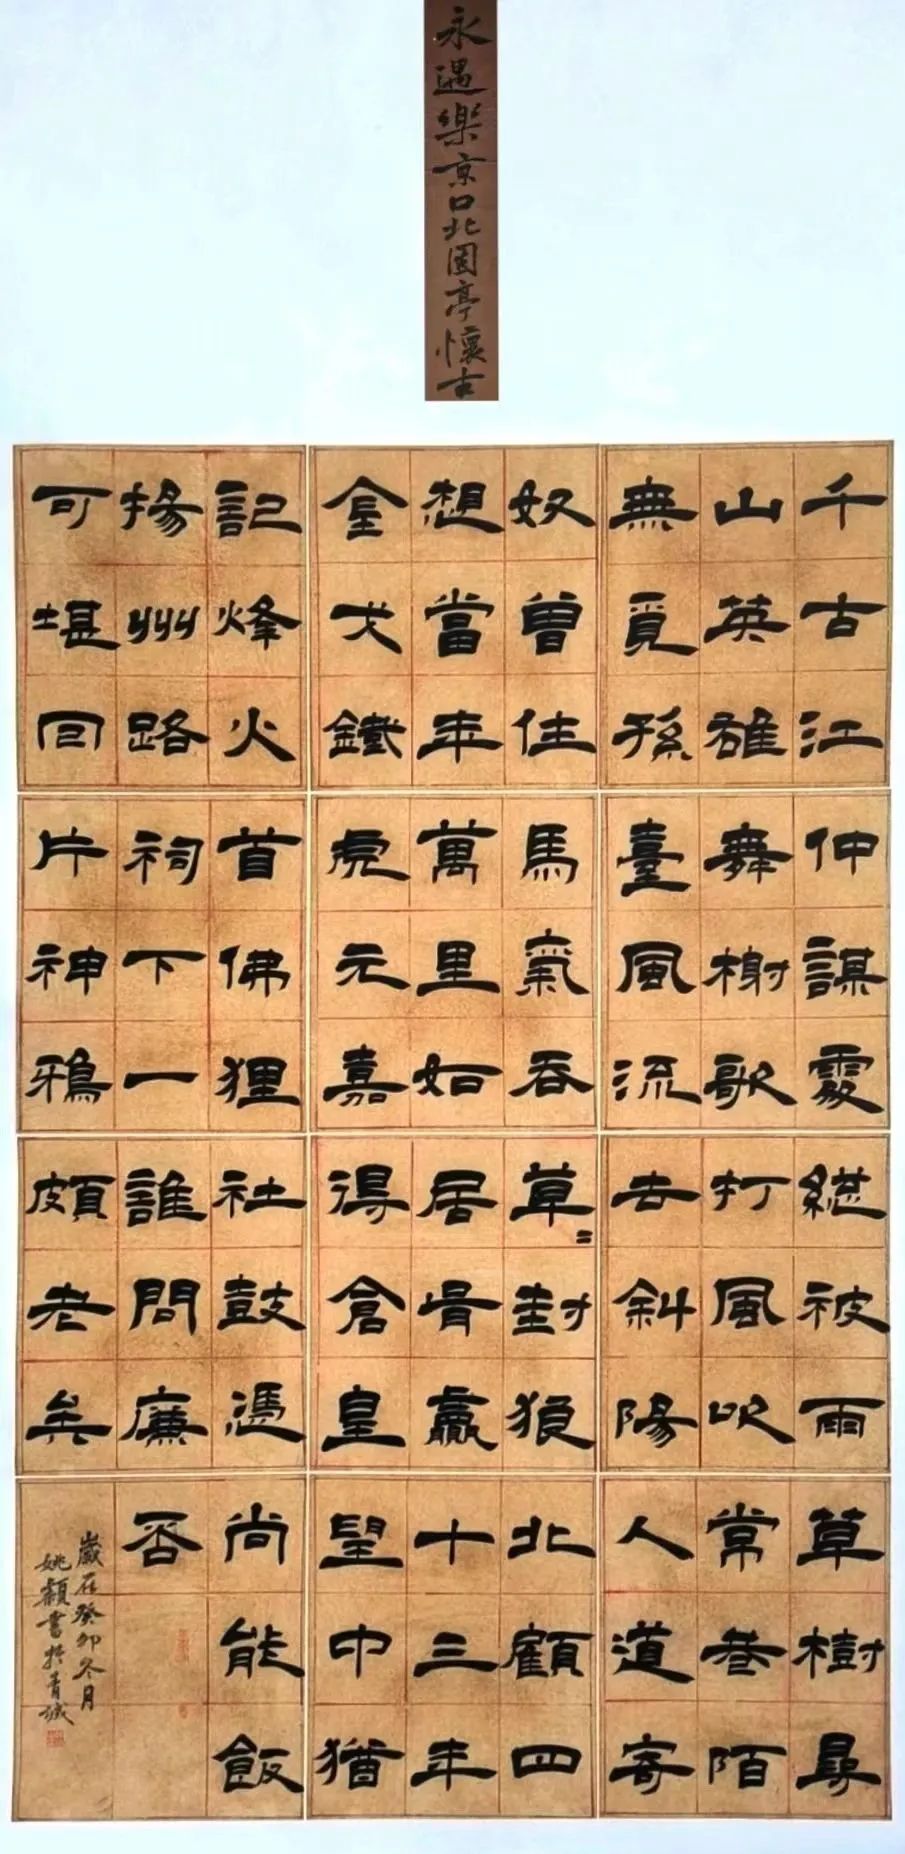 永遇樂京口北固亭懷古
千古江
山英雄
無覓孫
仲謀處
舞榭歌
臺風流
總被雨
打風吹
去斜陽
草樹尋
常巷陌
人道寄
奴曾住
想當年
金戈鐵
馬氣吞
萬里如
虎元嘉
草〻封狼
居胥贏
得倉皇
北顧四
十三年
望中猶
記烽火
揚州路
可堪回
首佛狸
祠下一
片神鴉
社鼓憑
誰問廉
頗老矣
尚能飯
否
歲在癸卯冬月
姚書於青城